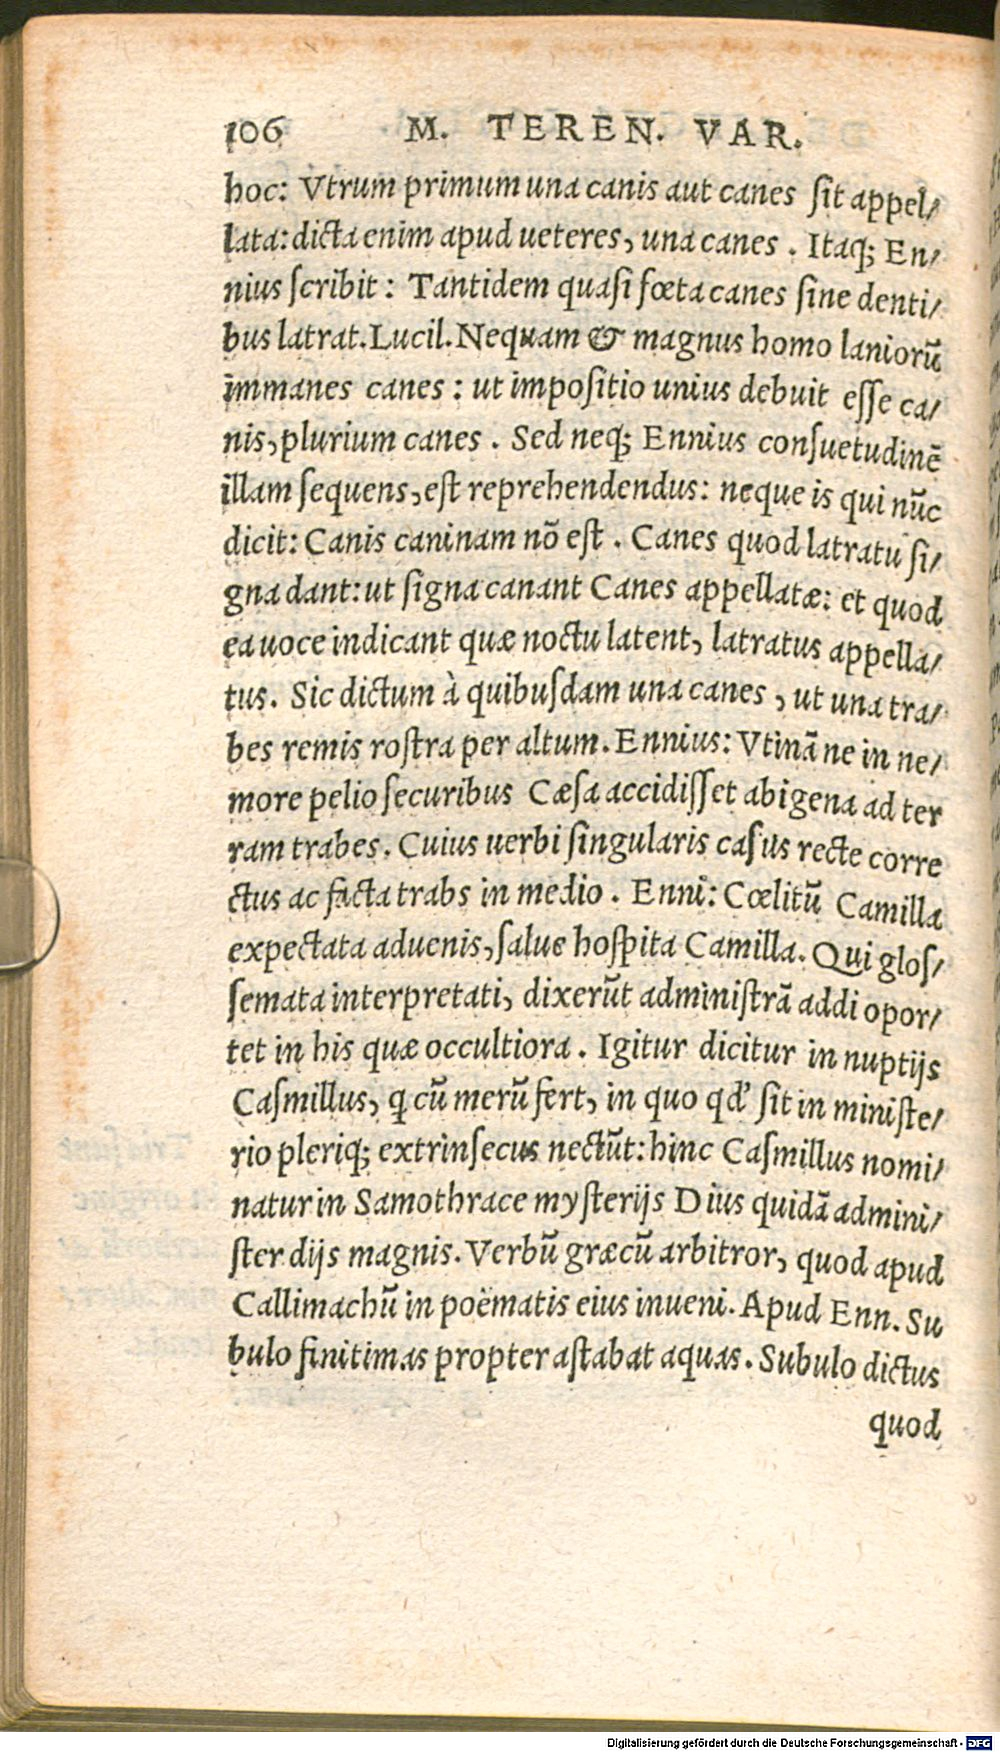 106 M. TEREN. VAR.
hoc: Vtrum primum una canis aut canes ſit appel/
lata: dicta enim apud ueteres, una canes. Itaq; En/
nius ſcribit: Tantidem quaſi fœta canes ſine denti/
bus latrat. Lucil. Nequam & magnus homo laniorũ
immanes canes: ut impoſitio unius debuit eſſe ca/
nis, plurium canes. Sed neq; Ennius conſuetudinẽ
illam ſequens, eſt reprehendendus: neque is qui nũc
dicit: Canis caninam nõ eſt. Canes quod latratu ſi/
gna dant: ut ſigna canant Canes appellatæ: et quod
ea uoce indicant quæ noctu latent, latratus appella/
tus. Sic dictum à quibuſdam una canes, ut una tra/
bes remis roſtra per altum. Ennius: Vtinã ne in ne/
more pelio ſecuribus Cæſa accidiſſet abigena ad ter
ram trabes. Cuius uerbi ſingularis caſus recte corre
ctus ac facta trabs in medio. Enni: Cœlitũ Camilla
expectata aduenis, ſalue hoſpita Camilla. Qui gloſ/
ſemata interpretati, dixerũt adminiſtrã addi opor/
tet in his quæ occultiora. Igitur dicitur in nuptijs
Caſmillus, ꝗ cũ merũ fert, in quo qd' ſit in miniſte/
rio pleriq; extrinſecus nectũt: hinc Caſmillus nomi/
natur in Samothrace myſterijs Dius quidã admini/
ſter dijs magnis. Verbũ græcũ arbitror, quod apud
Callimachũ in poëmatis eius inueni. Apud Enn. Su
bulo finitimas propter aſtabat aquas. Subulo dictus
quod
Digitalisierung gefördert durch die Deutsche Forschungsgemeinschaft - DFG